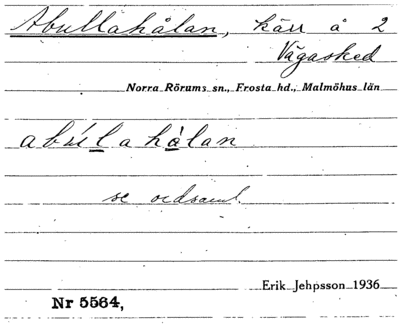 Abullahålan, kärr å 2
Vägasked
Norra Rörums sn., Frosta hd., Malmöhus län
abúlahàlan
se ordsaml.
Erik Jehpsson 1936
Nr 5564,